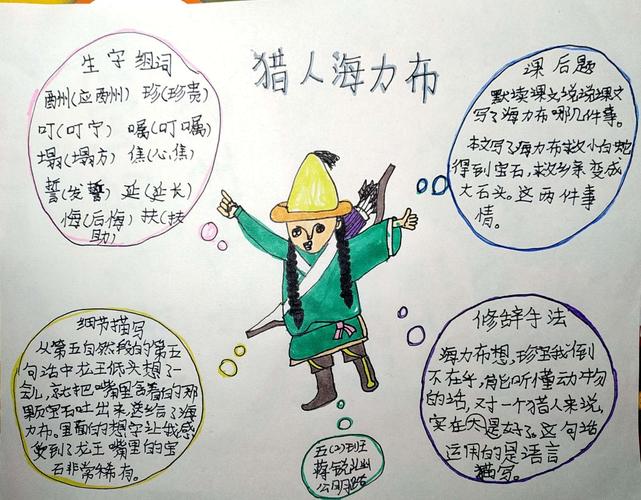 猎人海力布
生字组词
酬(应酬) 珍(珍贵)
叮(叮宁) 嘱(叮嘱)
塌(塌方) 焦(心焦)
誓(发誓) 延(延长)
悔(后悔) 扶(扶
助)
课后题
默读课文,说说课文
写了海力布哪几件事。
本文写了海力布救小白蛇
得到宝石,救乡亲变成
大石头。这两件事
情。
细节描写
从第五自然段的第五
句话中龙王低头想了一
会儿,就把嘴里含着的那
颗宝石吐出来送给了海
力布。里面的想字让我感
受到了龙王嘴里的宝
石非常稀有。
修辞手法
海力布想,珍宝我倒
不在乎,能听懂动物
的话,对一个猎人来说,
实在是太好了。这句话
运用的是语言
描写。
五(2)班